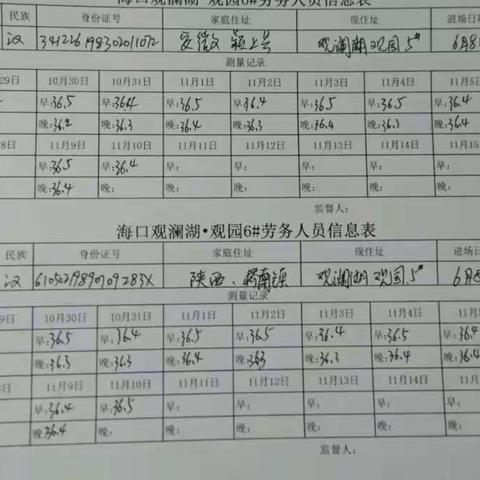 海口观澜湖·观园6#劳务人员信息表
民族 身份证号 家庭住址 现住址 进场日
汉 安徽 颍上县 观澜湖观园5# 6月8
测量记录
29日 10月30日 10月31日 11月1日 11月2日 11月3日 11月4日 11月5
早:36.5 早:36.4 早:36.5 早:36.4 早:36.5 早:36.5 早:36.4
晚:36.2 晚:36.3 晚:36.4 晚:36.3 晚:36.4 晚:36.3 晚:36.4
8日 11月9日 11月10日 11月11日 11月12日 11月13日 11月14日 11月15
早:36.5 早:36.4 早: 早: 早: 早: 早:
晚:36.4 晚: 晚: 晚: 晚: 晚: 晚:
监督人:
海口观澜湖·观园6#劳务人员信息表
民族 身份证号 家庭住址 现住址 进场日
汉 陕西 观澜湖观园5# 6月8
测量记录
9日 10月30日 10月31日 11月1日 11月2日 11月3日 11月4日 11月5
早:36.5 早:36.4 早:36.5 早:36.5 早:36.4 早:36.5 早:36.4
晚:36.3 晚:36.3 晚:36.4 晚:363 晚:36.3 晚:36.4 晚:36.4
8日 11月9日 11月10日 11月11日 11月12日 11月13日 11月14日 11月
早:36.4 早:36.5 早: 早: 早: 早: 早:
晚:36.4 晚: 晚: 晚: 晚: 晚: 晚:
监督人: